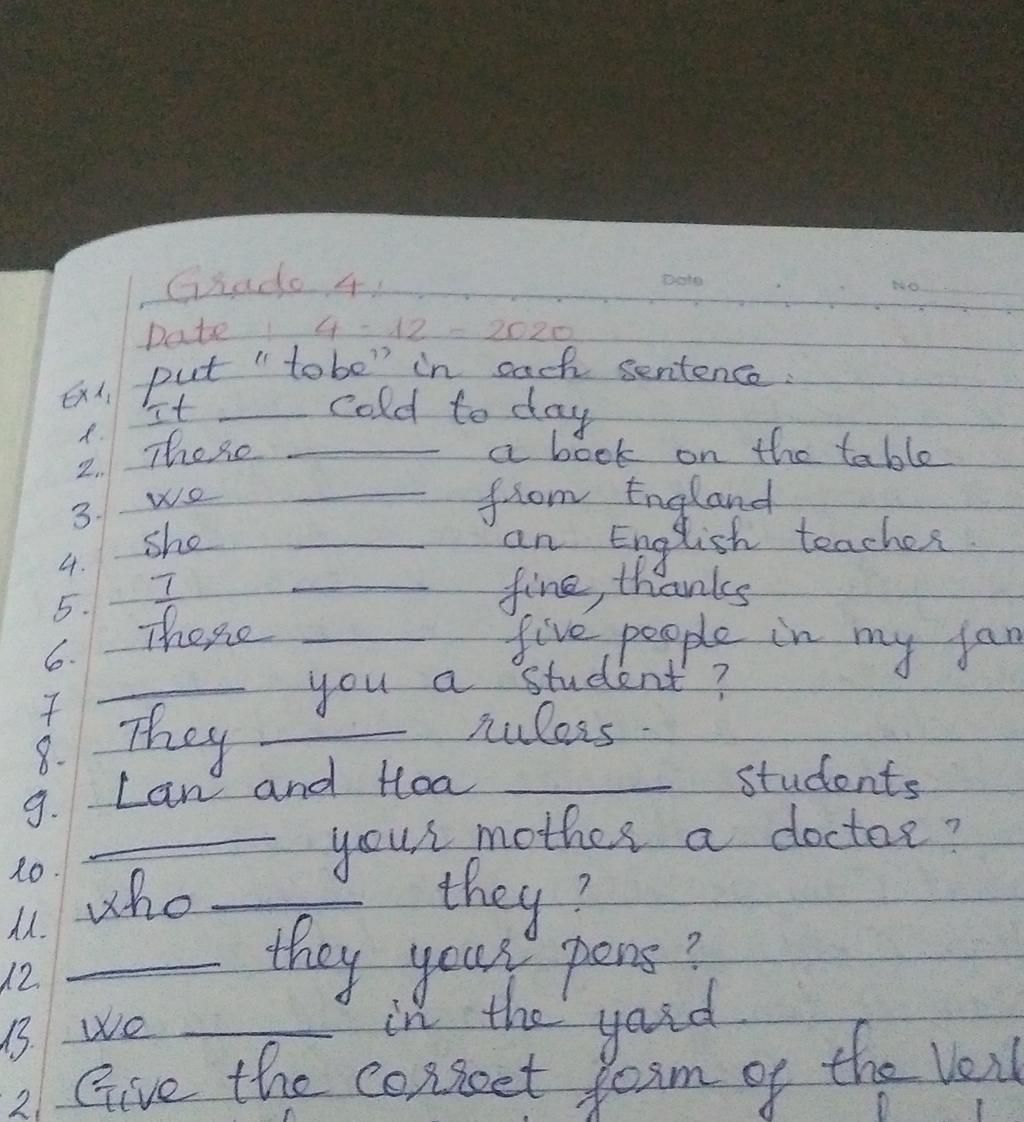 Grade 4:
Date No
Date : 4 - 12 - 2020
Ex1, put "tobe" in each sentence.
1. It ____ cold to day
2. There ____ a book on the table
3. we ____ from England
4. She ____ an English teacher.
5. I ____ fine, thanks
6. There ____ five people in my fam
7 ____ you a student?
8. They ____ rulers.
9. Lan and Hoa ____ students
10. ____ your mother a doctor?
11. who ____ they?
12. ____ they your pens?
13. we ____ in the yard
2 Give the correct form of the Verb